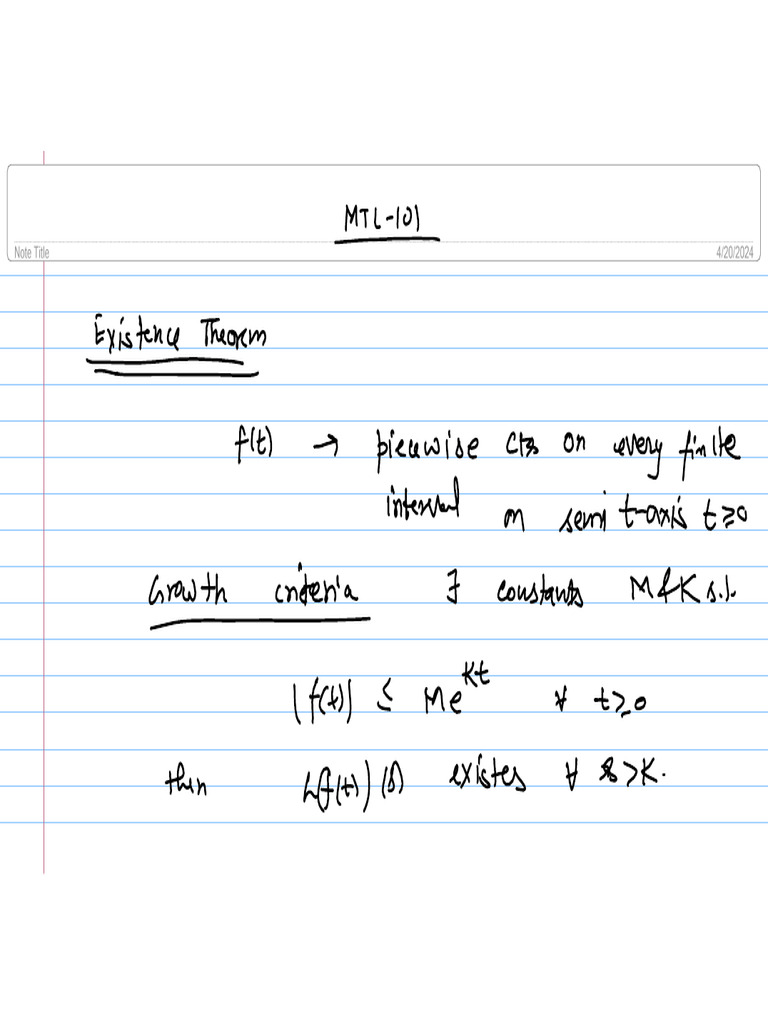 MTL-101
Note Title 4/20/2024
Existence Theorem
f(t) → piecewise cts on every finite
interval on semi t-axis t≥0
Growth criteria ∃ constants M & K s.t.
|f(t)| ≤ Me^{Kt} ∀ t≥0
then L(f(t))(s) existes ∀ s>K.